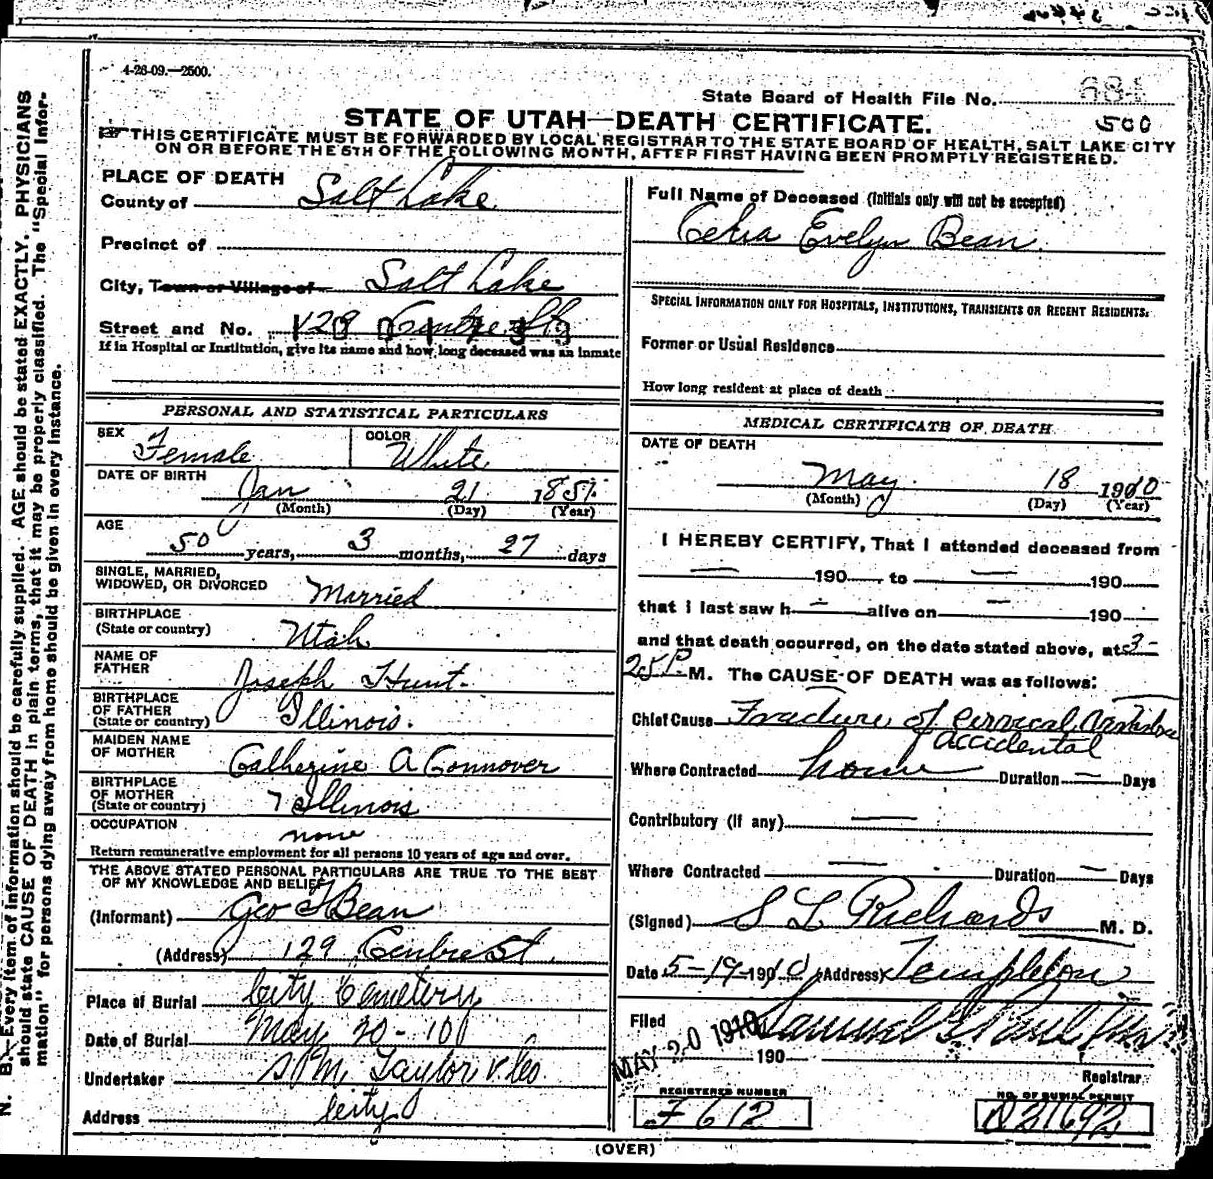 4-26-09.—2500.
State Board of Health File No. 684
500
STATE OF UTAH—DEATH CERTIFICATE.
THIS CERTIFICATE MUST BE FORWARDED BY LOCAL REGISTRAR TO THE STATE BOARD OF HEALTH, SALT LAKE CITY
ON OR BEFORE THE 5TH OF THE FOLLOWING MONTH, AFTER FIRST HAVING BEEN PROMPTLY REGISTERED.
PLACE OF DEATH
County of Salt Lake
Precinct of
City, Town or Village of Salt Lake
Street and No. 129 Centre St
If in Hospital or Institution, give its name and how long deceased was an inmate
PERSONAL AND STATISTICAL PARTICULARS
SEX Female COLOR White
DATE OF BIRTH Jan 21 185
(Month) (Day) (Year)
AGE
50 years, 3 months, 27 days
SINGLE, MARRIED,
WIDOWED, OR DIVORCED Married
BIRTHPLACE
(State or country) Utah
NAME OF
FATHER Joseph Hunt
BIRTHPLACE
OF FATHER
(State or country) Illinois.
MAIDEN NAME
OF MOTHER Catherine A Connover
BIRTHPLACE
OF MOTHER
(State or country) Illinois
OCCUPATION none
Return remunerative employment for all persons 10 years of age and over.
THE ABOVE STATED PERSONAL PARTICULARS ARE TRUE TO THE BEST
OF MY KNOWLEDGE AND BELIEF
(Informant) Geo T Bean
(Address) 129 Centre St.
Place of Burial City Cemetery
Date of Burial May 20-10
Undertaker S M Taylor & Co
Address City
Full Name of Deceased (Initials only will not be accepted)
Celia Evelyn Bean
SPECIAL INFORMATION ONLY FOR HOSPITALS, INSTITUTIONS, TRANSIENTS OR RECENT RESIDENTS.
Former or Usual Residence
How long resident at place of death
MEDICAL CERTIFICATE OF DEATH
DATE OF DEATH
May 18 1910
(Month) (Day) (Year)
I HEREBY CERTIFY, That I attended deceased from
— 190 to — 190
that I last saw h — alive on — 190
and that death occurred, on the date stated above, at 3-
25 P. M. The CAUSE OF DEATH was as follows:
Chief Cause Fracture of cervical vertebrae
accidental
Where Contracted home Duration — Days
Contributory (if any) —
Where Contracted — Duration — Days
(Signed) S L Richards M. D.
Date 5-19-1910 (Address) Templeton
Filed
MAY 20 1910
190
Registrar
REGISTERED NUMBER
F 612
NO. OF BURIAL PERMIT
D21692
(OVER)
N. B.—Every item of information should be carefully supplied. AGE should be stated EXACTLY. PHYSICIANS
should state CAUSE OF DEATH in plain terms, that it may be properly classified. The "Special Infor-
mation" for persons dying away from home should be given in every instance.